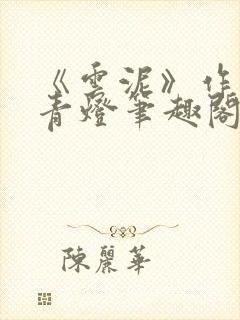 《雲泥》作
青燈筆趣閣
陳麗華